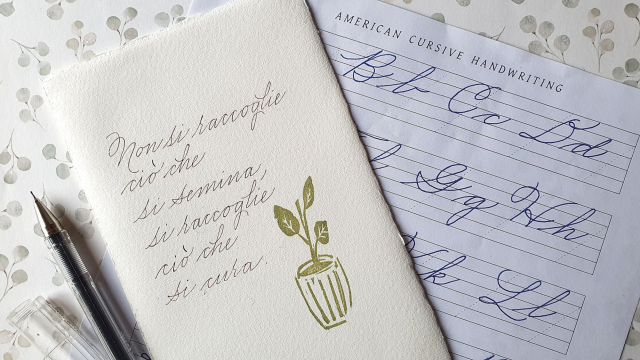 Non si raccoglie
ciò che
si semina,
si raccoglie
ciò che
si cura.
AMERICAN CURSIVE HANDWRITING
Bb Cc Dd
Gg Hh
Kk Ll